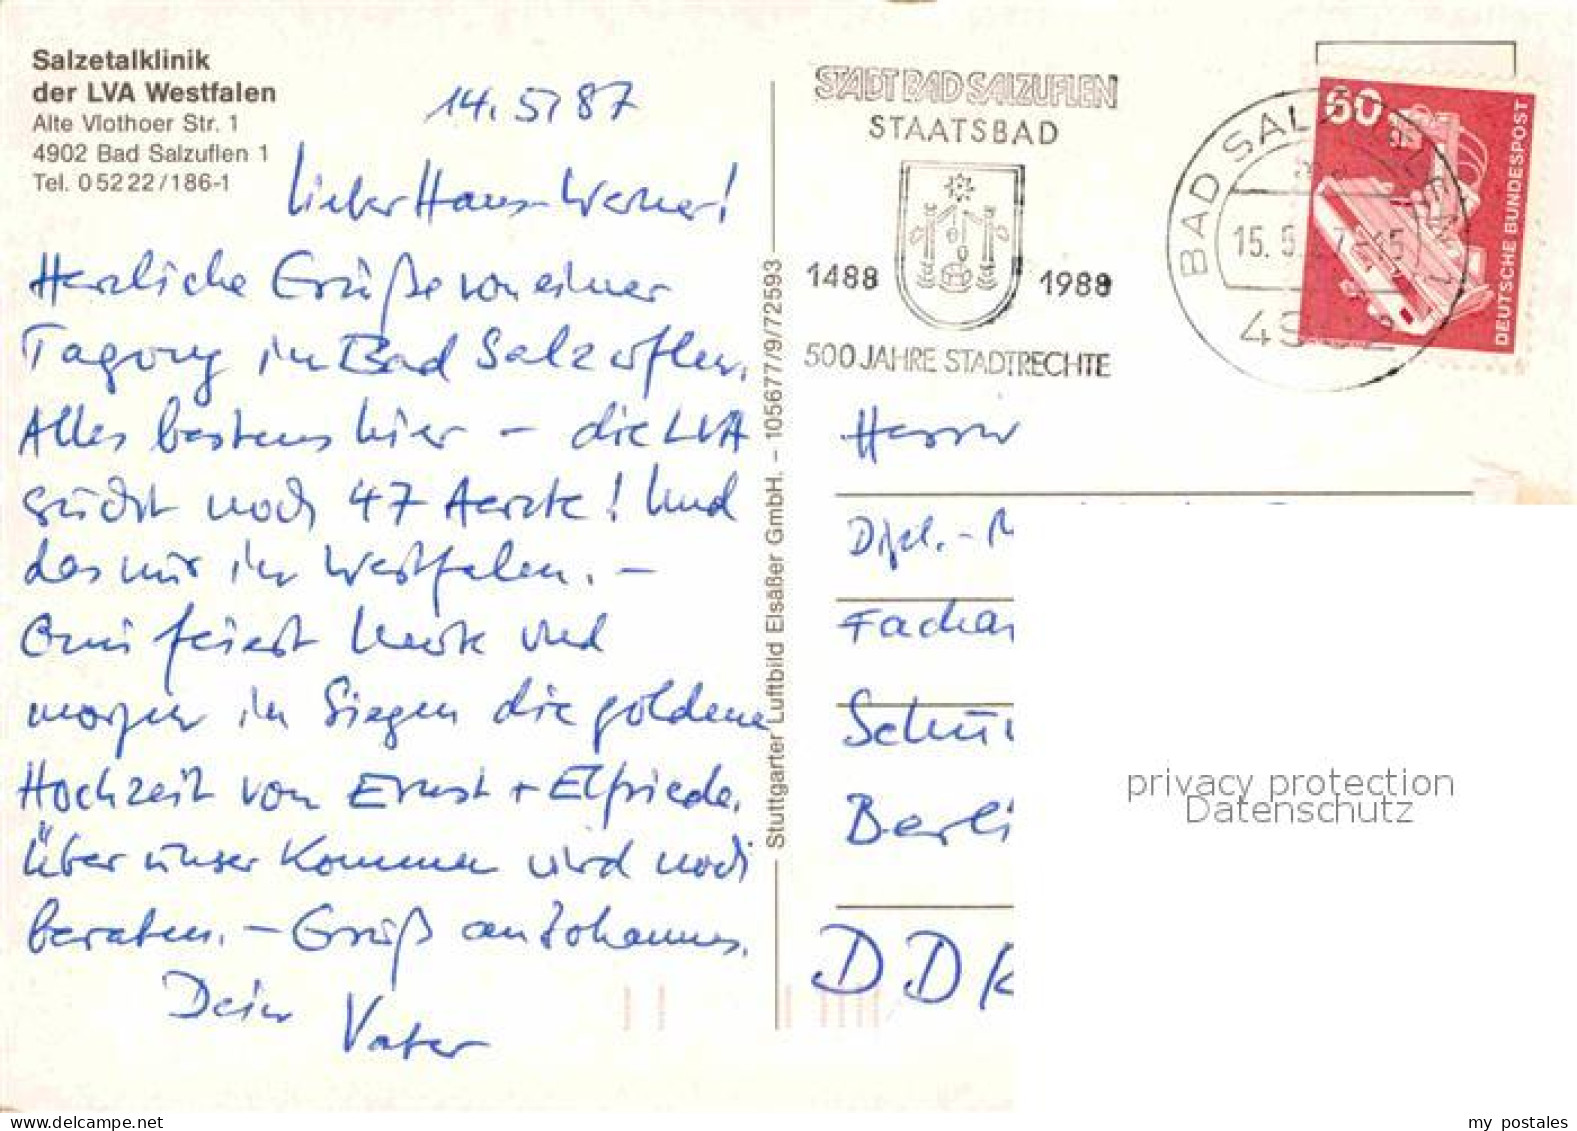 Salzetalklinik
der LVA Westfalen
Alte Vlothoer Str. 1
4902 Bad Salzuflen 1
Tel. 0 52 22 / 186-1
14. 5. 87
Lieber Hans-Werner!
Herzliche Grüße von einer
Tagung in Bad Salzuflen.
Alles bestens hier – die LVA
sucht noch 47 Aerzte! Und
das nur in Westfalen. –
Omi feiert heute und
morgen in Siegen die goldene
Hochzeit von Ernst + Elfriede.
Über unser Kommen wird noch
beraten. – Gruß an Johannes.
Dein Vater
Stuttgarter Luftbild Elsäßer GmbH. – 105677/9/9/72593
STADT BAD SALZUFLEN
STAATSBAD
1488 1988
500 JAHRE STADTRECHTE
BAD SALZUFLEN 1
15. 5.
4902
60
DEUTSCHE BUNDESPOST
Herrn
Dipl.-
Fachar
Schü
Berli
DD
privacy protection
Datenschutz
www.delcampe.net
my postales